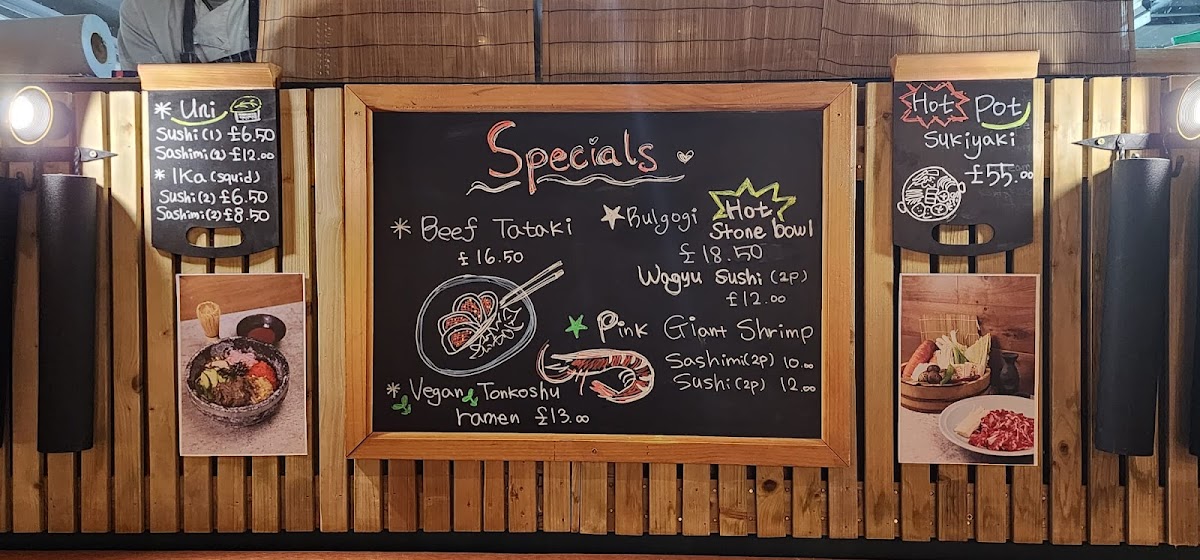 * Uni
Sushi (1) £6.50
Sashimi (2) £12.00
* Ika (squid)
Sushi (2) £6.50
Sashimi (2) £8.50
Specials
* Beef Tataki
£16.50
* Vegan Tonkoshu
ramen £13.00
Bulgogi Hot
Stone bowl
£18.50
Wagyu Sushi (2p)
£12.00
Pink Giant Shrimp
Sashimi (2p) 10.00
Sushi (2p) 12.00
Hot Pot
Sukiyaki
£55.00